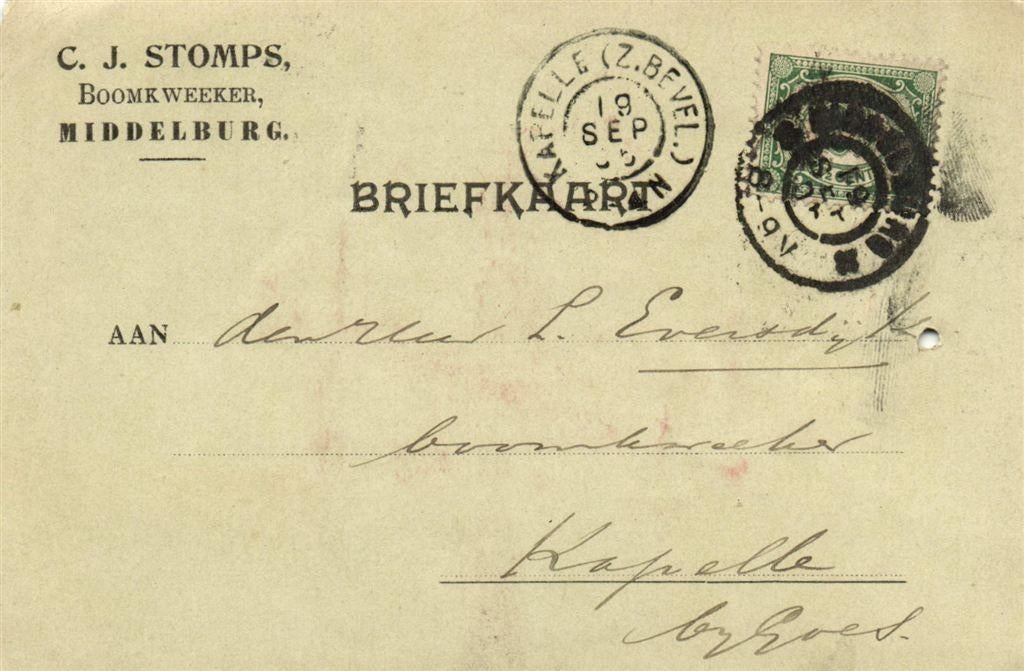 C. J. STOMPS,
BOOMKWEEKER,
MIDDELBURG.
KAPELLE (Z. BEVEL.)
19
SEP
N
BRIEFKAART
8-9V
CENT
AAN den Heer L. Eversdijk
boomkweeker
Kapelle
by Goes.